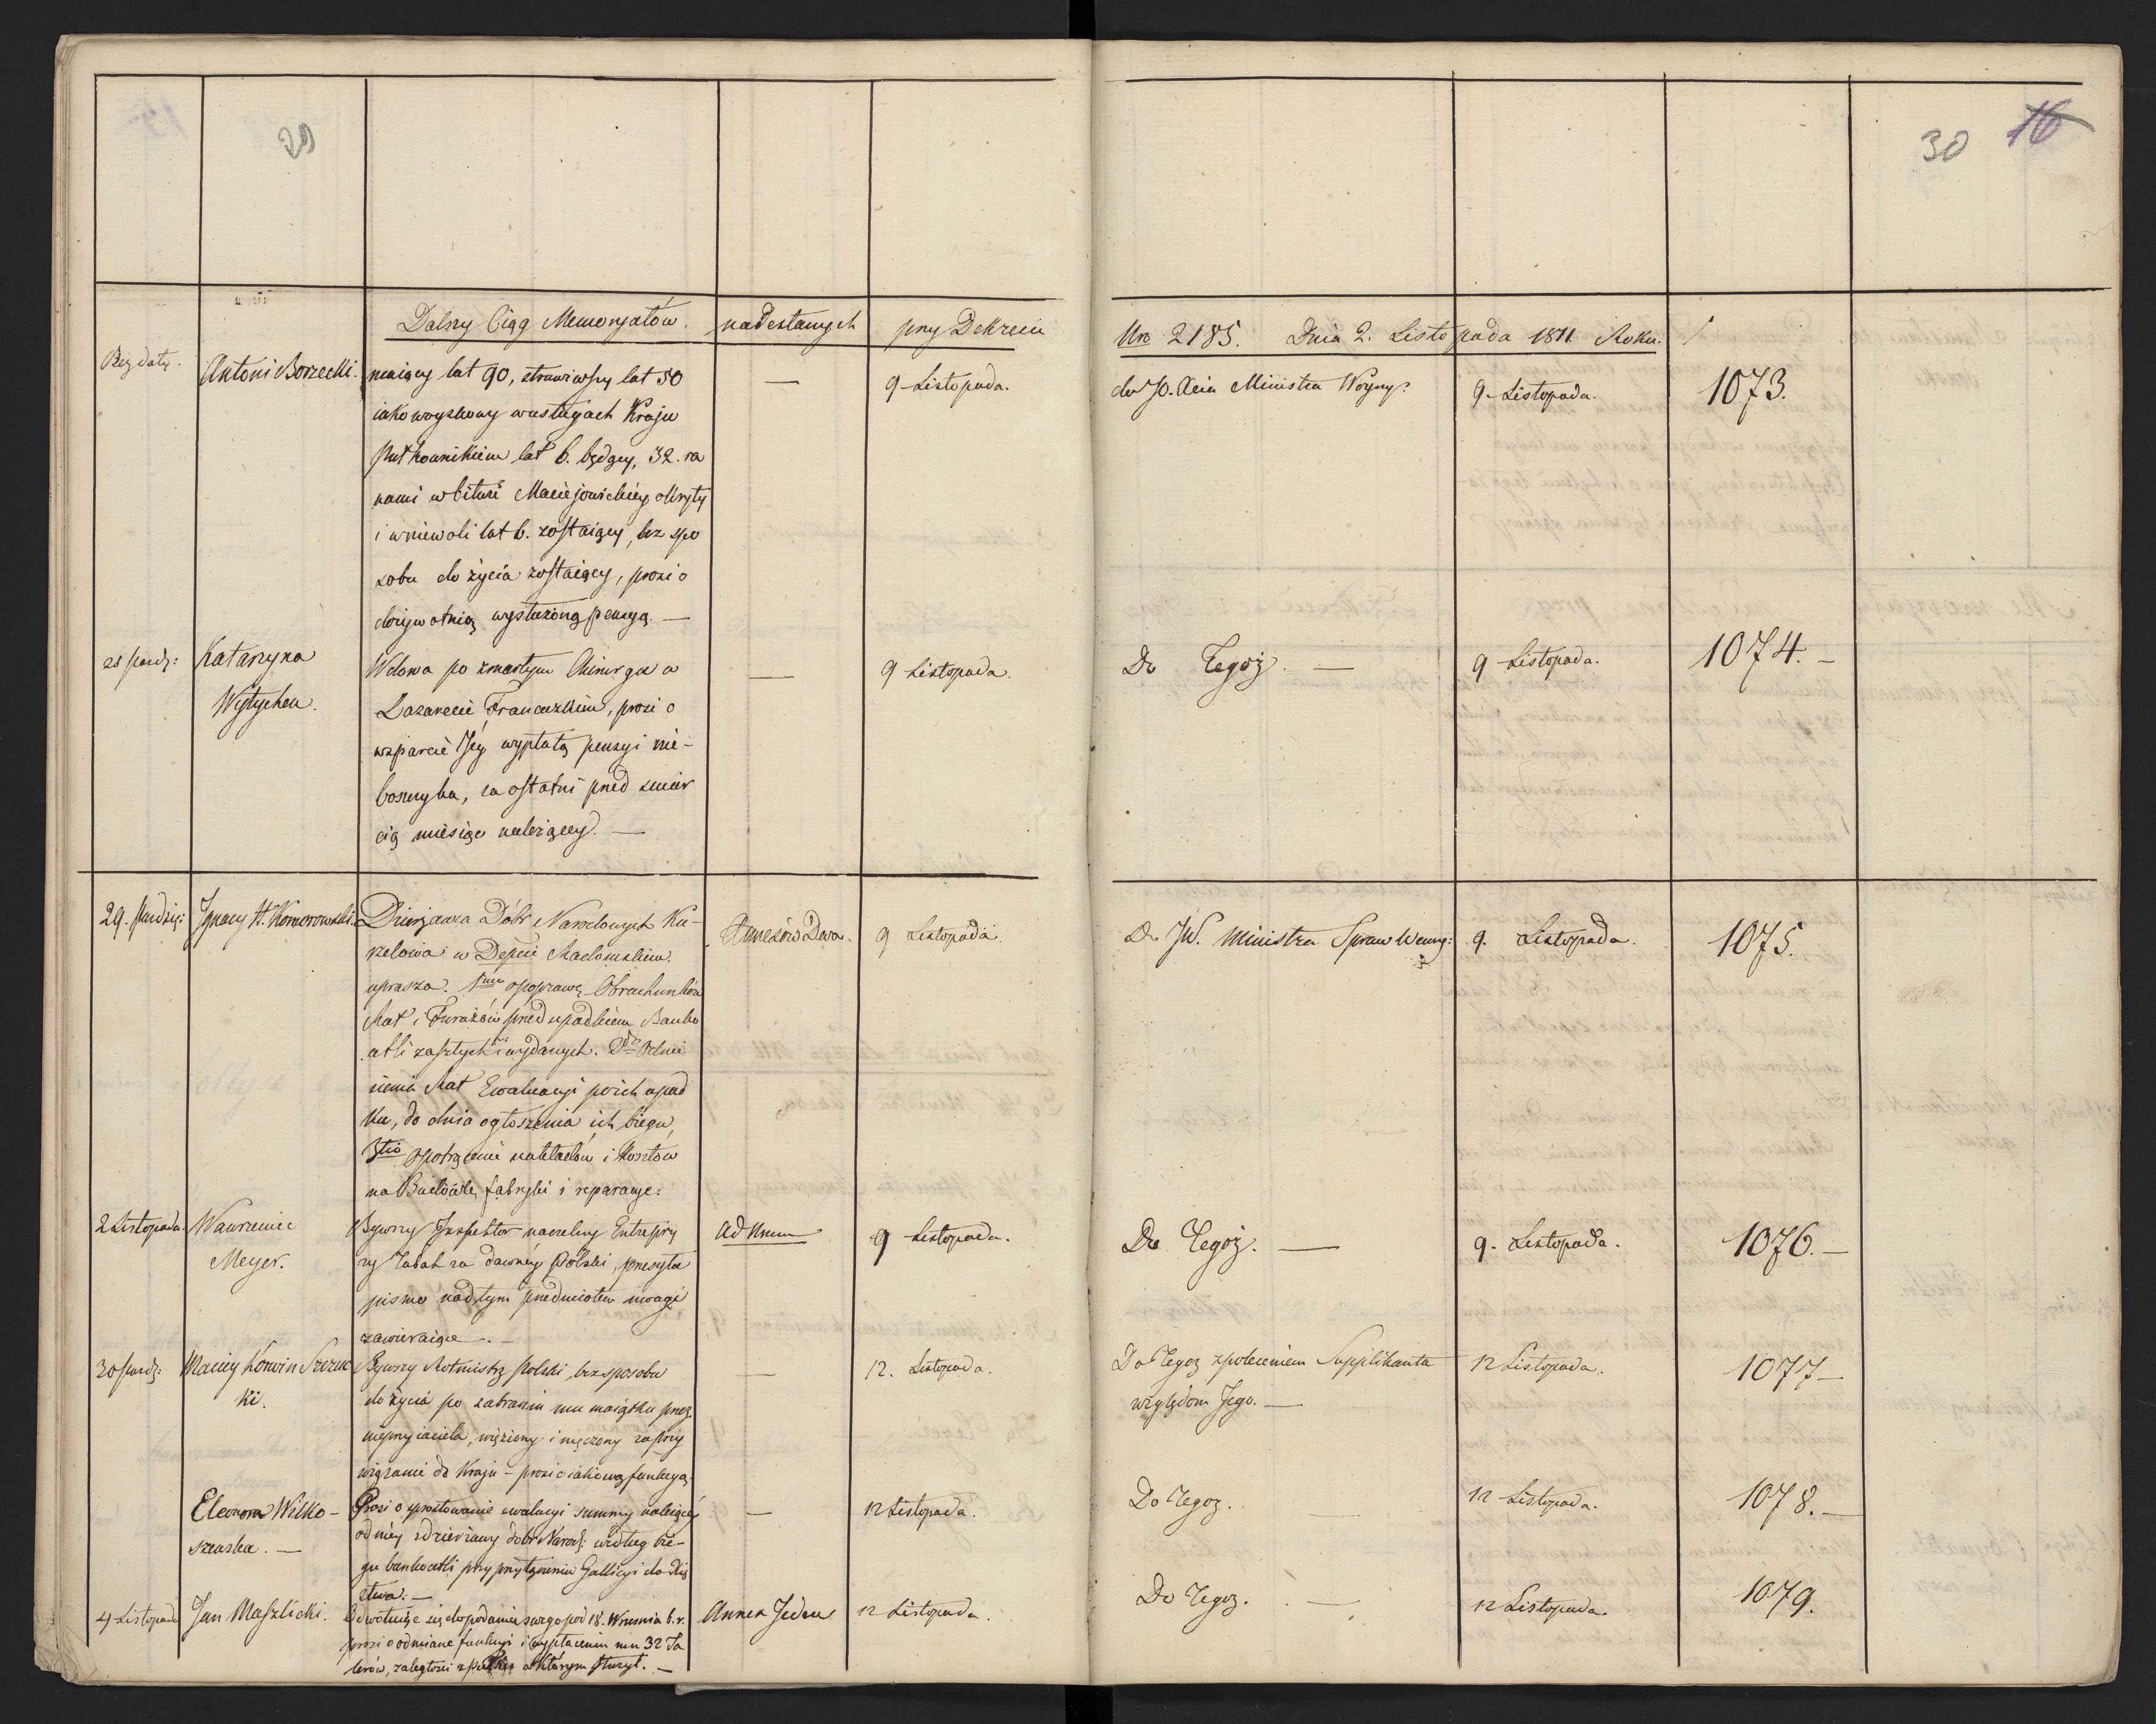 29
30 16
Dalszy Ciąg Memoryałów. nadesłanych przy Dekrecie Nro 2185. Dnia 2. Listopada 1811 Roku.
Bez daty. Antoni Borzecki. maiący lat 90, strawiwszy lat 50 — 9 Listopada. do JO. Xcia Ministra Woyny. 9 Listopada. 1073.
iako woyskowy w usługach Kraju
Pułkownikiem lat 6. będący, 32. ra
nami w bitwie Macieiowickiey okryty
i w niewoli lat 6. zostaiący, bez spo
sobu do życia zostaiący, prosi o
dożywotnią wysłużoną pensyą. —
28 Paźdz: Katarzyna Wdowa po zmarłym Chirurgu w — 9 Listopada. Do Tegoż. — 9 Listopada. 1074. —
Wytychen. Lazarecie Francuzkim, prosi o
wsparcie Jey wypłatą pensyi nie-
boszczyka, za ostatni przed śmier
cią miesiąc należącey. —
29. Paździe: Ignacy H. Komorowski. Dzierzawca Dóbr Narodowych Ku- Annexów Dwa. 9 Listopada. Do JW. Ministra Spraw Wewnę: 9. Listopada. 1075.
rzelowa w Depcie Radomskim.
uprasza. 1mo o poprawę Obrachunków
Rat i Furażów przed upadkiem Banko
cetli zaszłych i wydanych. 2do Odmie
nienia Rat Ewaluacyi po ich upad
ku, do dnia ogłoszenia ich biegu,
3tio o potrącenie nakładów i Kosztów
na Budowle, fabryki i reparacye.
2 Listopada. Wawrzeniec Bywszy Inspektor naczelny Entrepry Ad Unum 9 Listopada. Do Tegoż. — 9. Listopada. 1076. —
Meyer. zy Tabak za dawney Polski, przesyła
pismo nad tym przedmiotem uwagi
zawieraiące. —
30 Paźdz: Maciey Korwin Szczuc Bywszy Rotmistrz Polski, bez sposobu — 12. Listopada. Do Tegoż z poleceniem Supplikanta 12 Listopada. 1077 —
ki. do życia po zabraniu mu maiątku przez względom Jego. —
nieprzyiaciela, więziony i męczony za przy
wiązanie do Kraju — prosi o iakową funkcyą.
Eleonora Wilko- Prosi o sprostowanie ewaluacyi summy należącéy — 12 Listopada. Do Tegoż. — 12 Listopada. 1078. —
szewska. — od niey z dzierżawy dóbr Narod: według bie-
gu bankocetli przy przyłączeniu Gallicyi do Xię
stwa. —
4 Listopada Jan Maszlicki. Odwołuiąc się do podania swego pod 18. Września b. r. Annex Jeden 12 Listopada. Do Tegoż. — 12 Listopada. 1079.
prosi o odmianę funkcyi i wypłacenia mu 32 Ta
lerów, zaległości z w którym służył. —